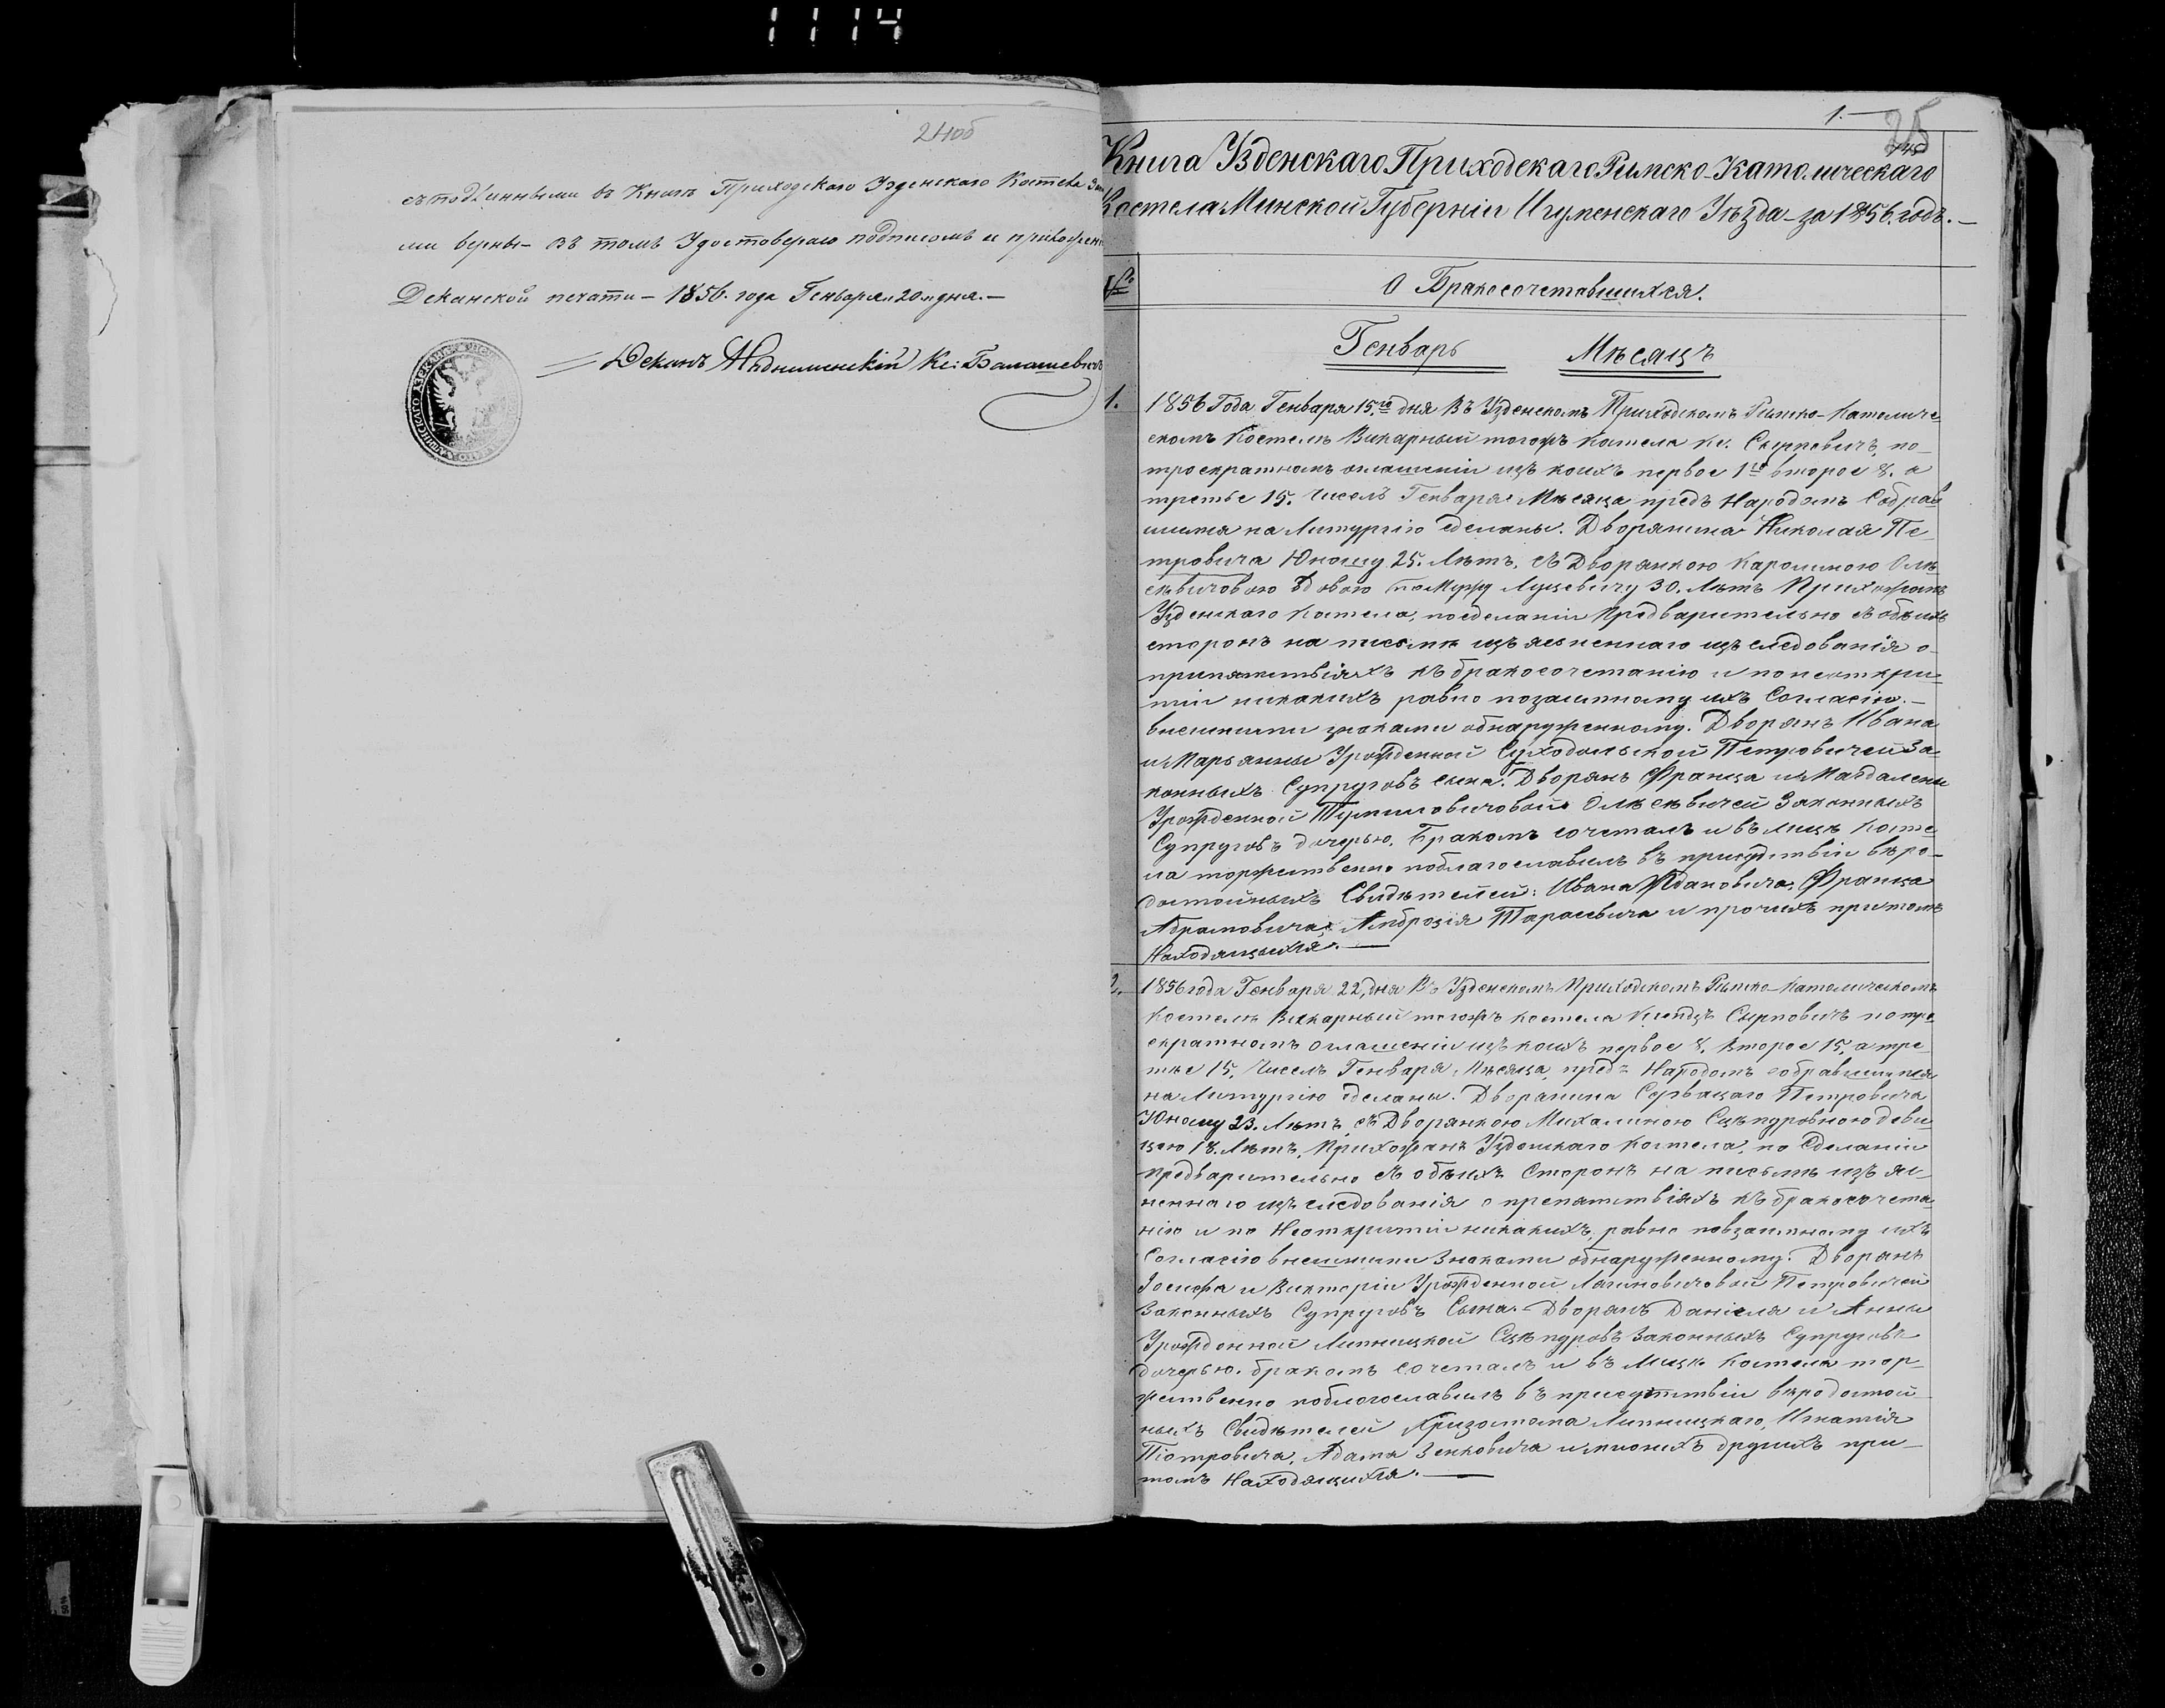 1114
24об
съ подлинными въ Книгѣ Приходскаго Узденскаго Костела
ми верны – въ томъ Удостоверяю подписомъ и приложен
Деканской печати – 1856. года Генваря 20 дня. –
Деканъ Кс: Балашевичъ
1.
25
Книга Узденскаго Приходскаго Римско-Католическаго
Костела Минской Губерніи Игуменскаго Уѣзда – за 1856. годъ. –
№
О Бракосочетавшихся.
Генварь Мѣсяцъ
1.
1856 Года Генваря 15го дня Въ Узденскомъ Приходскомъ Римско-Католиче
скомъ Костелѣ Викарный тогожъ Костела Кс. Сырповичъ, по
троекратномъ оглашеніи изъ коихъ первое 1го второе 8. а
третье 15. Чиселъ Генваря Мѣсяца предъ Народомъ Собрав
шимся на Литургію сделаны. Дворянина Николая Пе
тровича Юношу 25. Лѣтъ, съ Дворянкою Каролиною Олѣ
сѣвичовою Вдовою по Мужу Луцевичу 30. Лѣтъ Прихожанъ
Узденскаго Костела, по сделаніи Предварительно съ обѣихъ
сторонъ на письмѣ изъясненнаго изъследованія о
припятствіяхъ къ бракосочетанію и по неоткры
тіи никакихъ равно повзаимному ихъ Согласію. –
внешними знаками обнаруженному. Дворянъ Ивана
и Марьянны Урожденной Суходольской Петровичей За
конныхъ Супруговъ сына. Дворянъ Франца и Магдалены
Урожденной Олѣсѣвичей Законныхъ
Супруговъ дочерью. Бракомъ сочеталъ и въ лицѣ Косте
ла торжественно поблагославилъ въ присудствіи вѣро
достойныхъ Свидѣтелей: Ивана Франца
Абрамовича, Амброзія Тарасевича и прочихъ притомъ
Находящихся. –
2.
1856 года Генваря 22, дня Въ Узденскомъ Приходскомъ Римско-Католическомъ
Костелѣ Викарный тогожъ костела Ксендзъ Сырповичъ по тро
екратномъ Оглашеніи изъ коихъ первое 8. Второе 15, а тре
тье 15. Чиселъ Генваря, Мѣсяца, предъ Народомъ собравшимся
на Литургію сделаны. Дворянина Сервацаго Петровича
Юношу 23. Лѣтъ, съ Дворянкою Михалиною Сцѣпуровною деви
цею 18. Лѣтъ, Прихожанъ Узденскаго Костела, по Сделаніи
предварительно съ обѣихъ Сторонъ на письмѣ изъяс
неннаго изъследованія о препятствіяхъ къ бракосочета
нію и по Неоткрытіи никакихъ, равно повзаимному ихъ
Согласію внешними Знаками обнаруженному. Дворянъ
Іосифа и Викторіи Урожденной Логиновичовой Петровичей
Законныхъ Супруговъ Сына. – Дворянъ Даніеля и Анны
Урожденной Липницкой Сцѣпуровъ Законныхъ Супруговъ
дочерью. бракомъ сочеталъ и въ Лицѣ Костела тор
жественно поблогославилъ въ присутствіи вѣродостой
ныхъ Свидѣтелей Хризостома Липницкаго, Игнатія
Піотровича, Адама Зенковича и многихъ другихъ при
томъ Находящихся. –